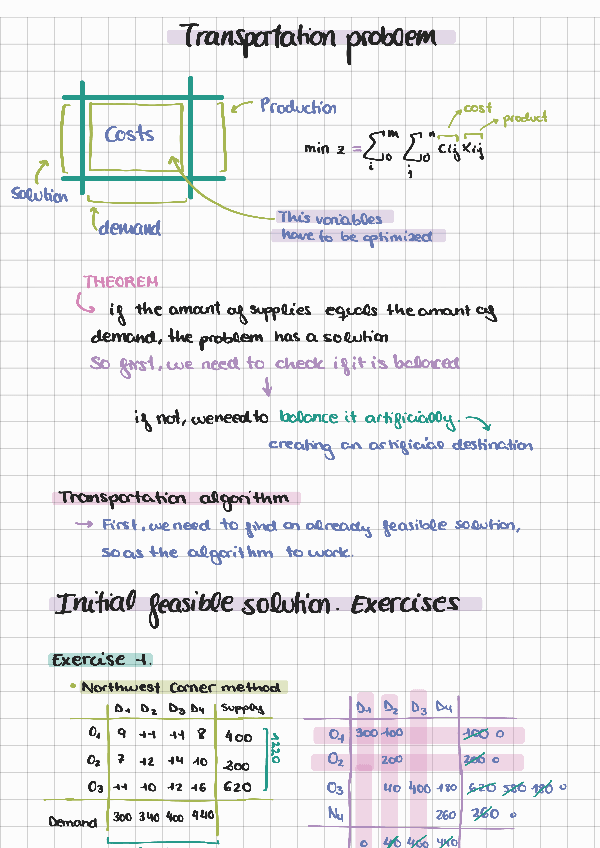 Transportation problem
Costs
Production
solution
demand
cost
product
min z = Σ Σ Cij Xij
i 0 m j 0 n
This variables
have to be optimized
THEOREM
if the amant of supplies equals the amant of
demand, the problem has a solution
So first, we need to check if it is balanced
if not, we need to balance it artificially.
creating an artificial destination
Transportation algorithm
→ First, we need to find an already feasible solution,
so as the algorithm to work.
Initial feasible solution. Exercises
Exercise 1.
• Northwest Corner method
D1 D2 D3 D4 Supply
O1 9 11 11 8 400
O2 7 12 14 10 200
O3 11 10 12 16 620
Demand 300 340 400 440
1220
D1 D2 D3 D4
O1 300 100 100 0
O2 200 200 0
O3 40 400 180 620 580 180 0
N4 260 260 0